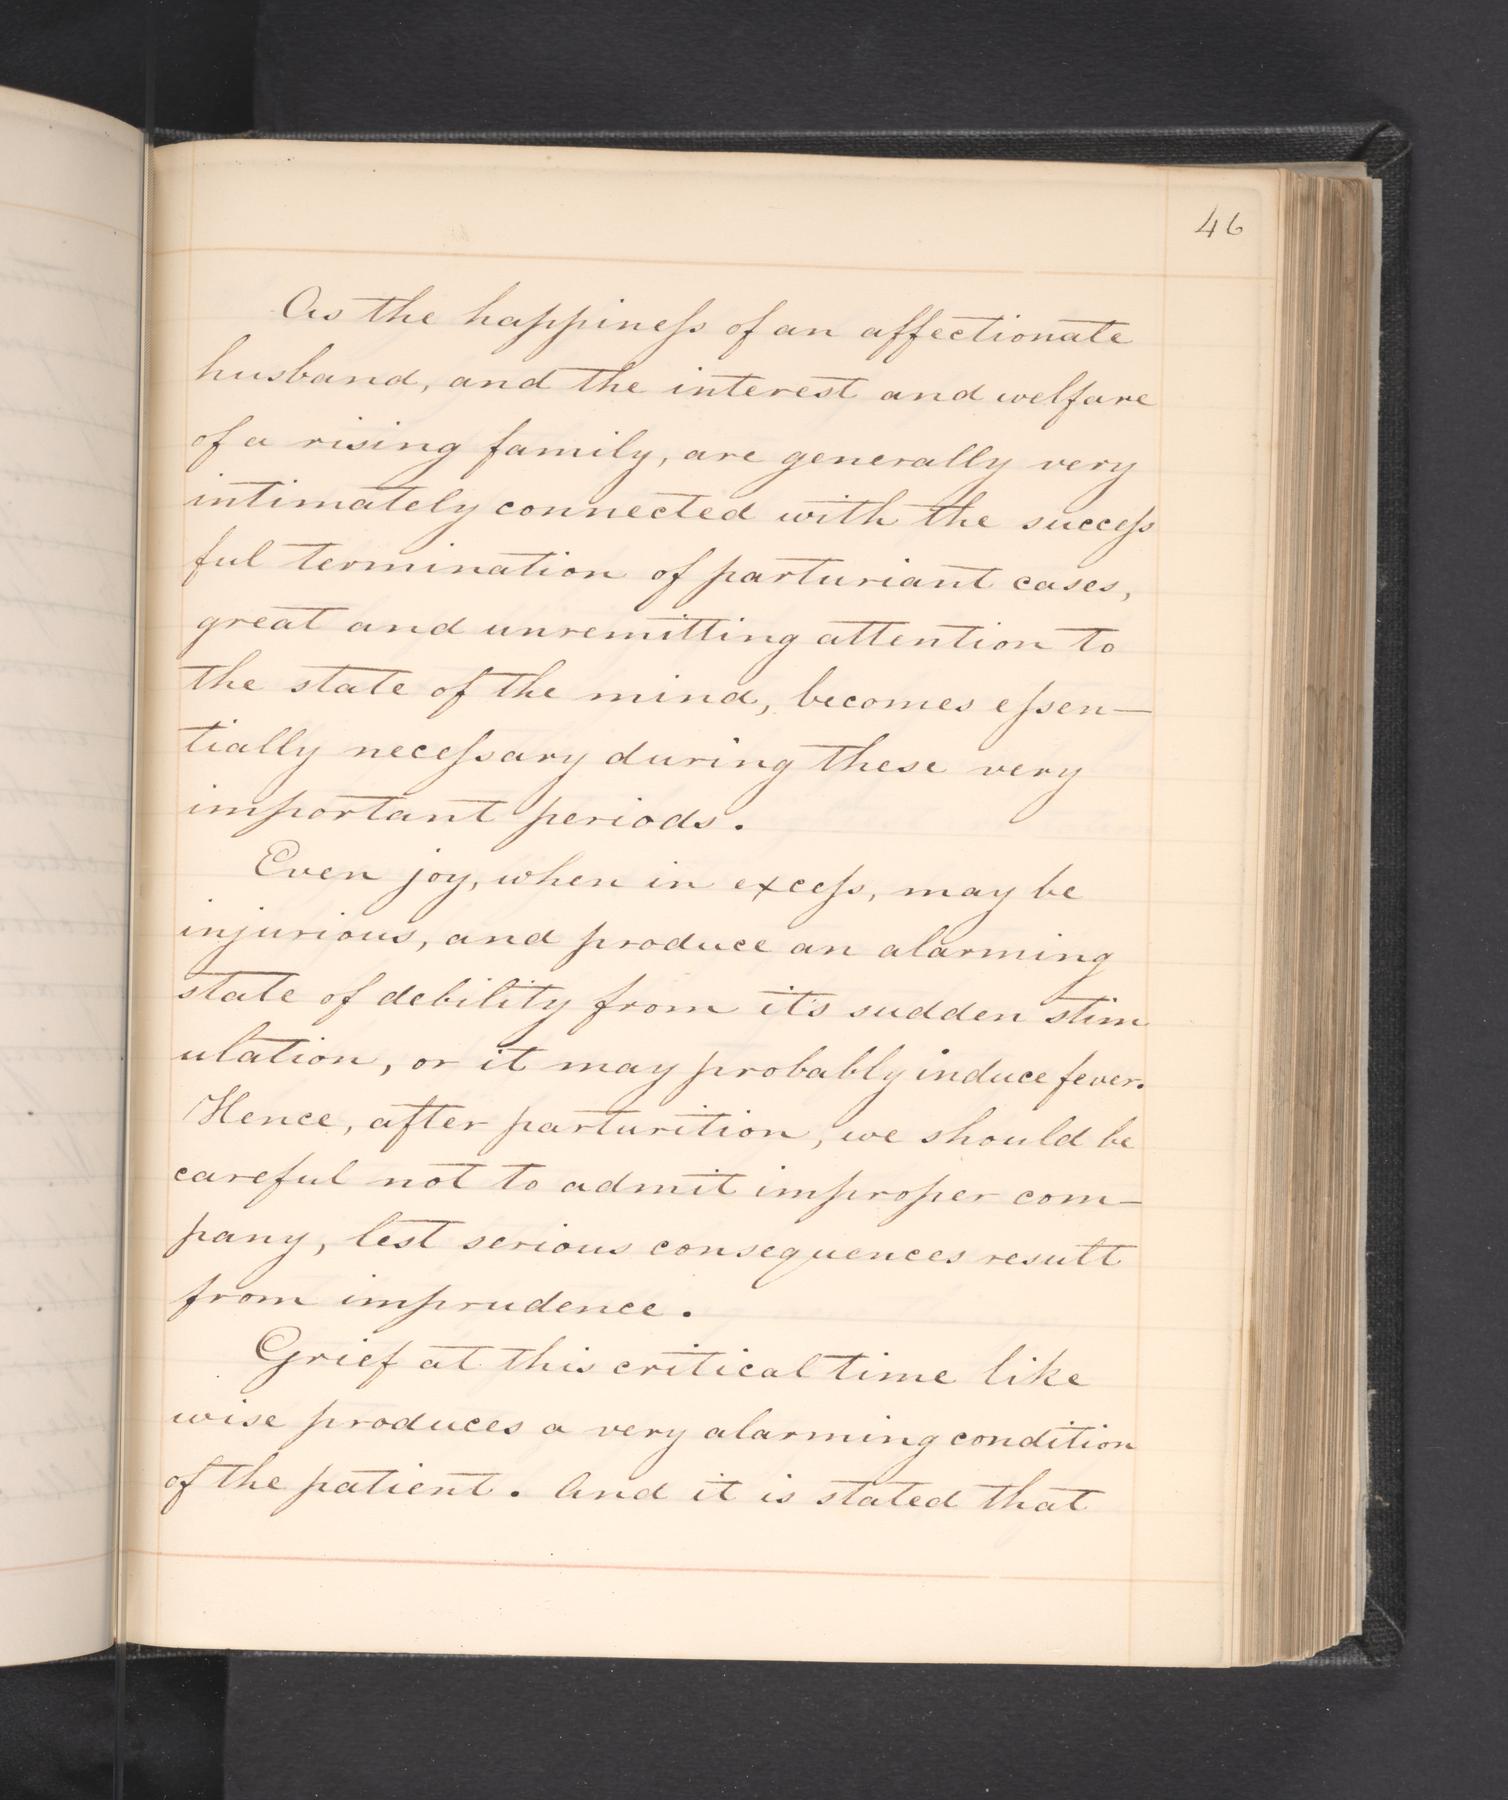 46
As the happiness of an affectionate
husband, and the interest and welfare
of a rising family, are generally very
intimately connected with the success
ful termination of parturiant cases,
great and unremitting attention to
the state of the mind, becomes essen—
tially necessary during these very
important periods.
Even joy, when in excess, may be
injurious, and produce an alarming
state of debility from it's sudden stim
ulation, or it may probably induce fever.
Hence, after parturition, we should be
careful not to admit improper com—
pany, lest serious consequences result
from imprudence.
Grief at this critical time like
wise produces a very alarming condition
of the patient. And it is stated that